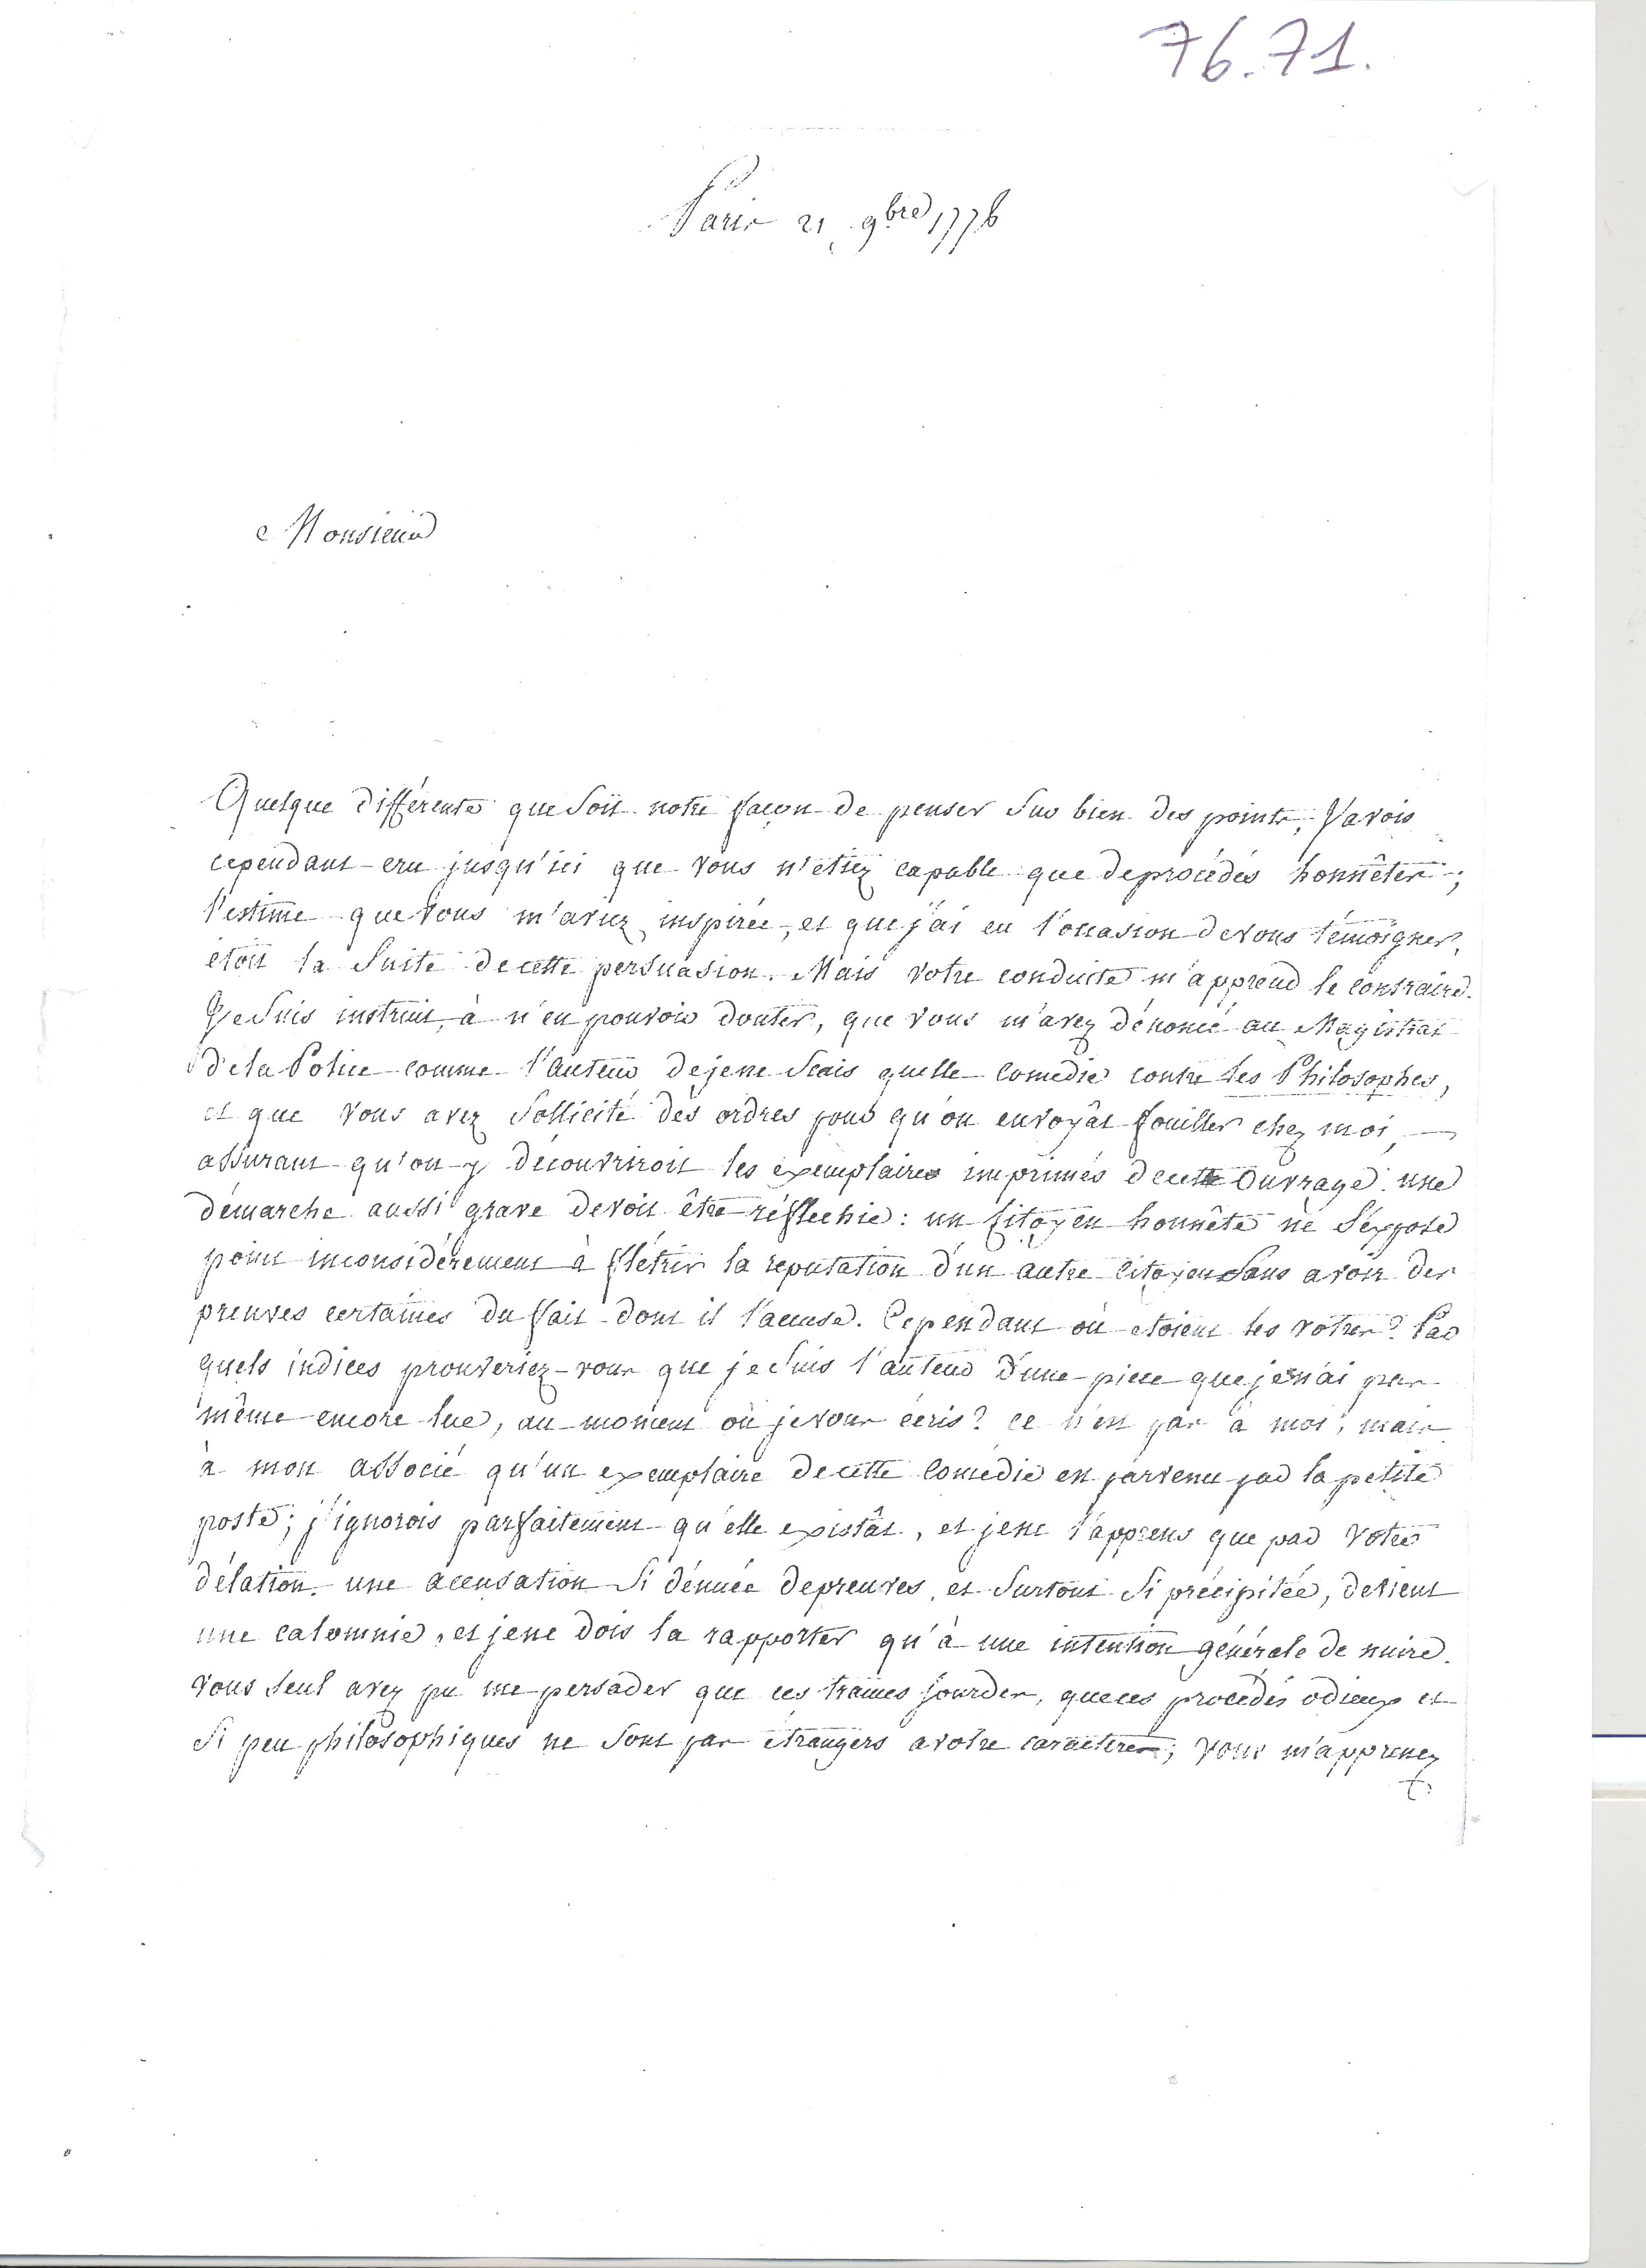 76.71.
Paris 21 9bre 1776
Monsieur
Quelque différente que soit notre façon de penser sur bien des points, J'avois
cependant cru jusqu'ici que vous n'étiez capable que de procédés honnêtes;
l'estime que vous m'aviez inspirée, et que j'ai eu l'occasion de vous témoigner,
étoit la suite de cette persuasion. Mais votre conduite m'apprend le contraire.
Je suis instruit, à n'en pouvoir douter, que vous m'avez dénoncé au Magistrat
de la Police comme l'auteur de je ne scais quelle comedie contre les Philosophes,
et que vous avez sollicité des ordres pour qu'on envoyât fouiller chez moi,
assurant qu'on y découvriroit les exemplaires imprimés de cette ouvrage. une
démarche aussi grave devoit être réflechie: un citoyen honnête ne s'expose
point inconsidérement à flétrir la reputation d'un autre citoyen sans avoir des
preuves certaines du fait dont il l'accuse. Cependant où etoient les votres? Par
quels indices prouveriez-vous que je suis l'auteur d'une piece que je n'ai pas
même encore lue, au moment où je vous écris? ce n'est pas à moi, mais
à mon associé qu'un exemplaire de cette comédie est parvenu par la petite
poste; j'ignorois parfaitement qu'elle existât, et je ne l'apprens que par votre
délation. une accusation si dénuée de preuves, et surtout si précipitée, devient
une calomnie, et je ne dois la rapporter qu'à une intention générale de nuire.
vous seul avez pu me persader que ces trames sourdes, que ces procédés odieux et
si peu philosophiques ne sont pas étrangers a votre caractere; vous m'apprenez